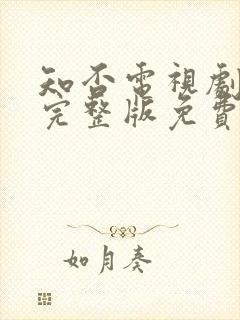 知否電視劇
完整版免費
如月奏